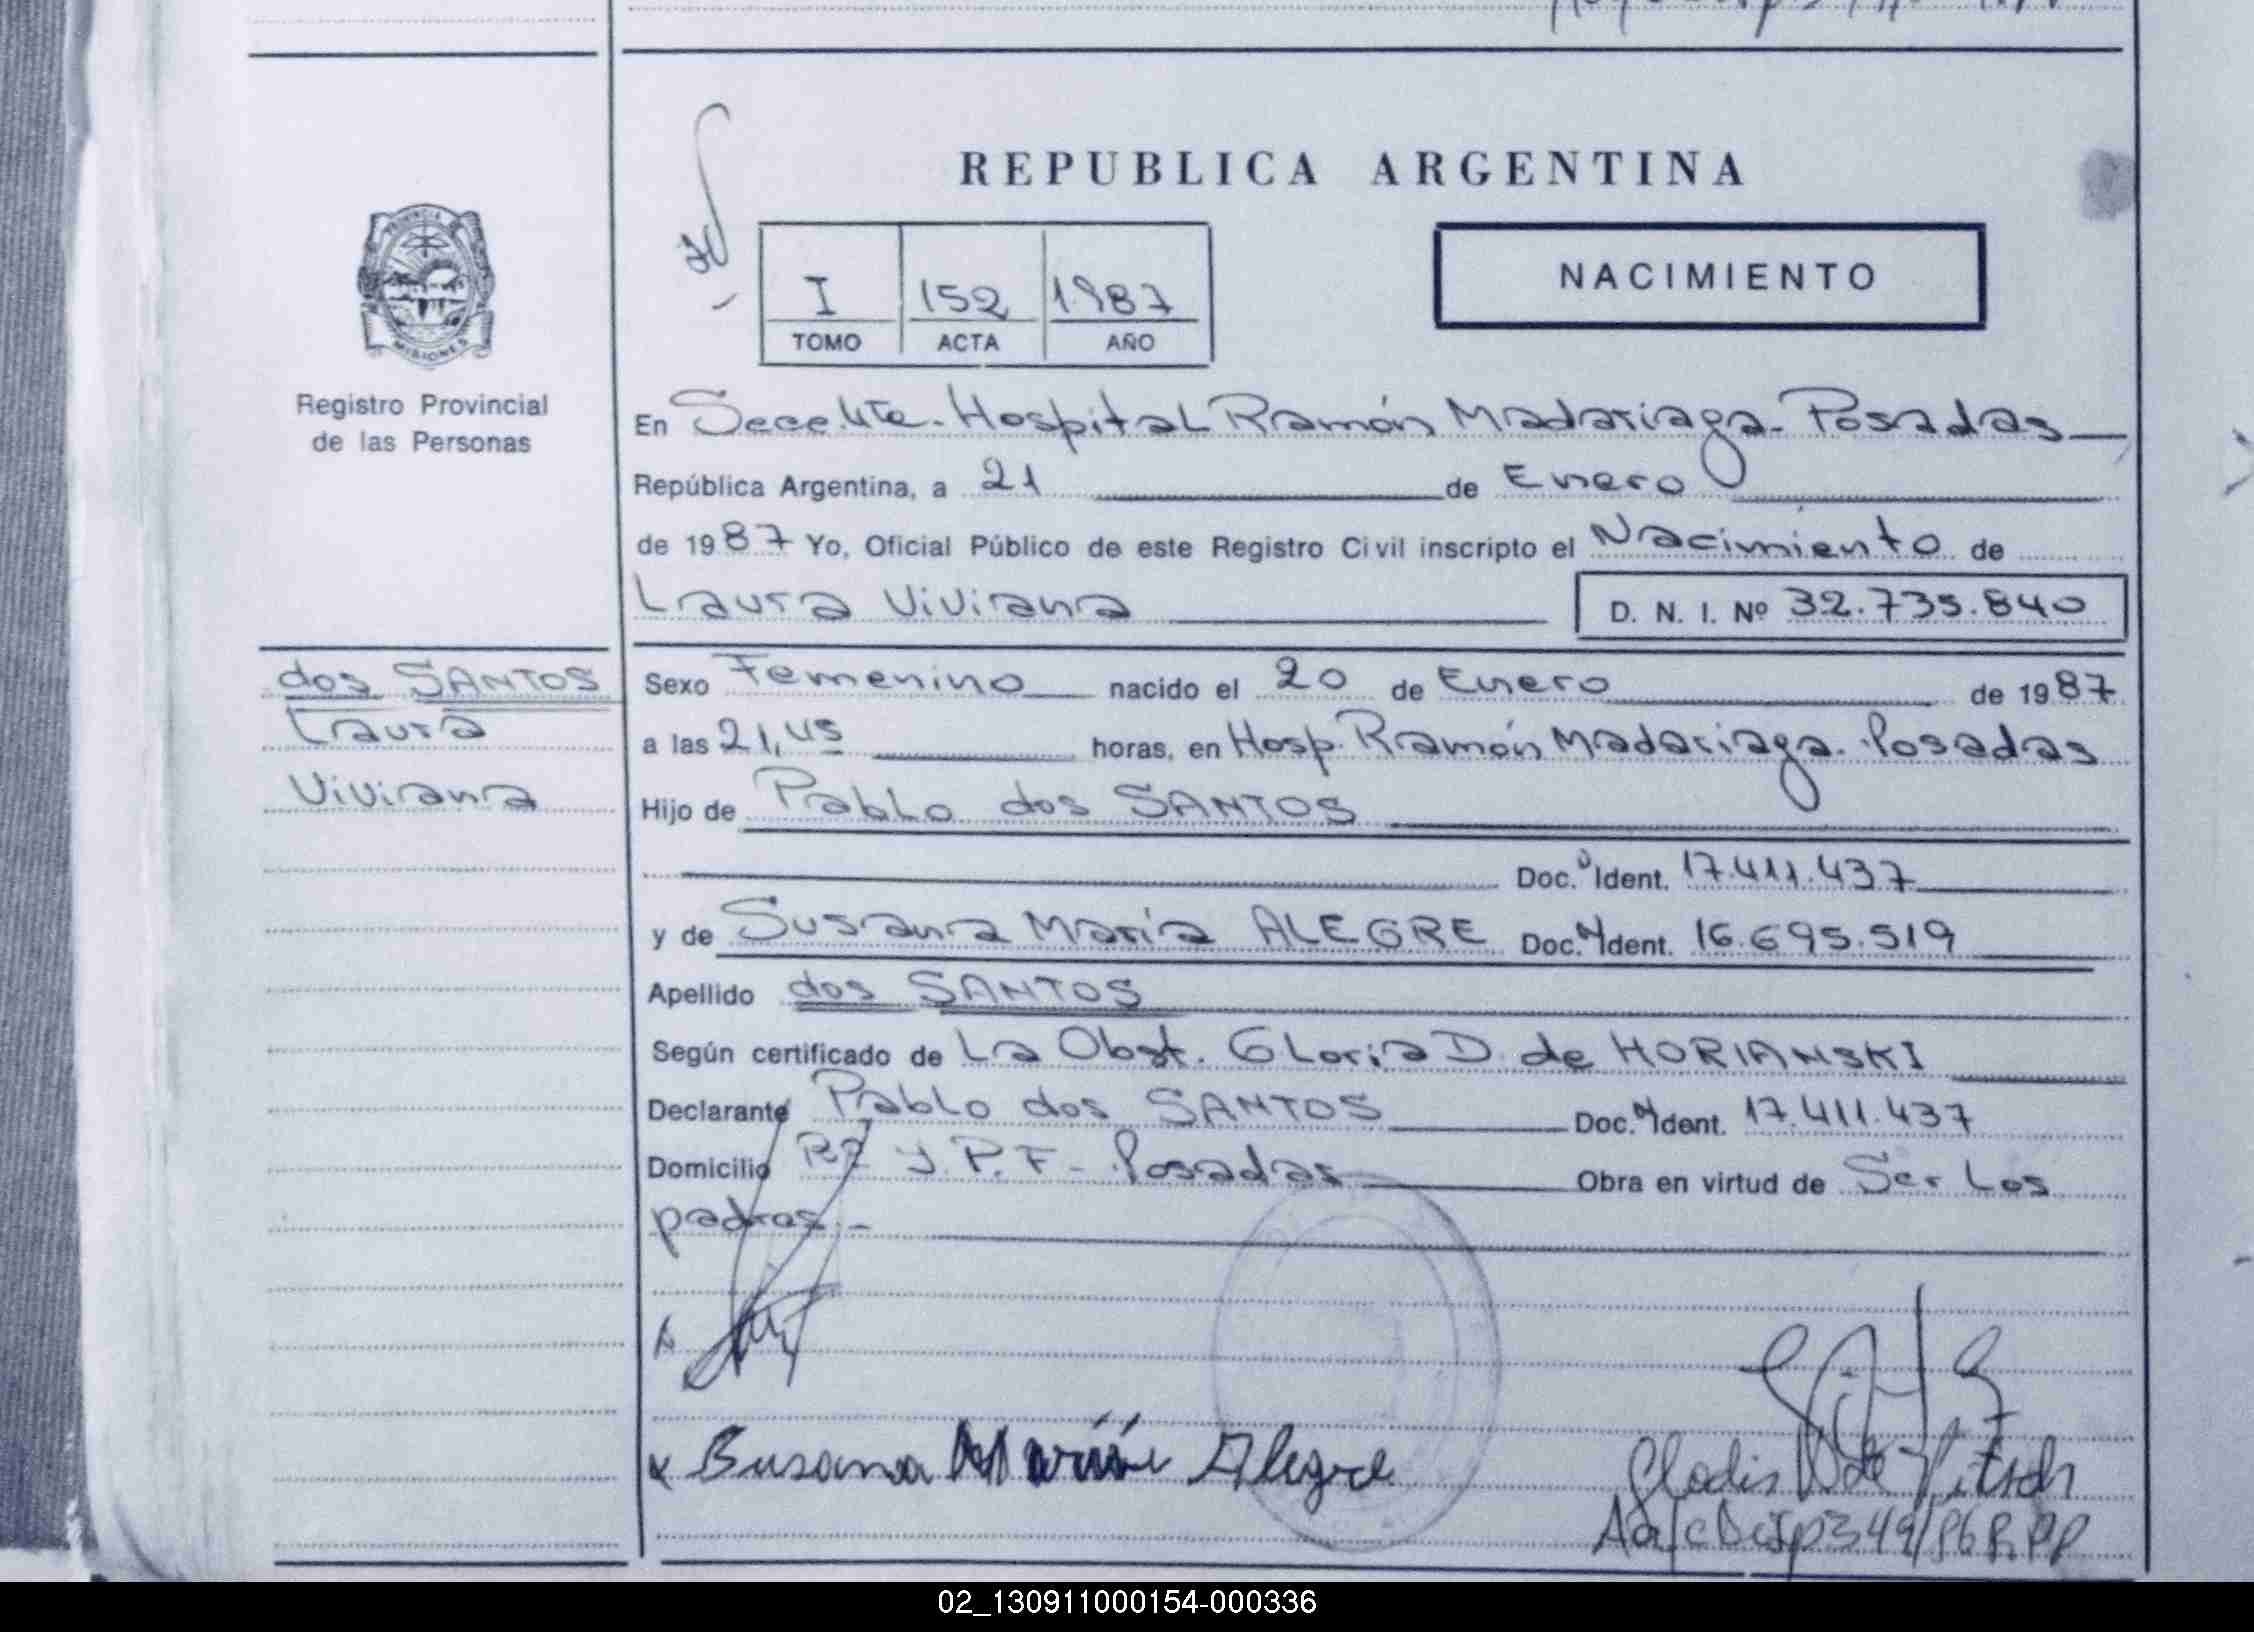 REPUBLICA ARGENTINA
PROVINCIA
MISIONES
Registro Provincial
de las Personas
I 152 1987
TOMO ACTA AÑO
NACIMIENTO
En Hospital Ramón Madariaga. Posadas
República Argentina, a 21 de Enero
de 1987 Yo, Oficial Público de este Registro Civil inscripto el Nacimiento de
Laura Viviana D. N. I. Nº 32.735.840
dos SANTOS
Laura
Viviana
Sexo Femenino nacido el 20 de Enero de 1987
a las 21,45 horas, en Hosp. Ramón Madariaga. Posadas
Hijo de Pablo dos SANTOS
Doc. Ident. 17.411.437
y de Susana María ALEGRE Doc. N Ident. 16.695.519
Apellido dos SANTOS
Según certificado de La Obst. Gloria D. de HORIANSKI
Declarante Pablo dos SANTOS Doc. N Ident. 17.411.437
Domicilio Y.P.F - Posadas Obra en virtud de Ser Los
padres.-
Susana María Alegre
Gladis de
02_130911000154-000336